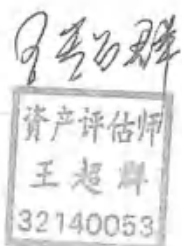 王超群
资产评估师
王超群
32140053